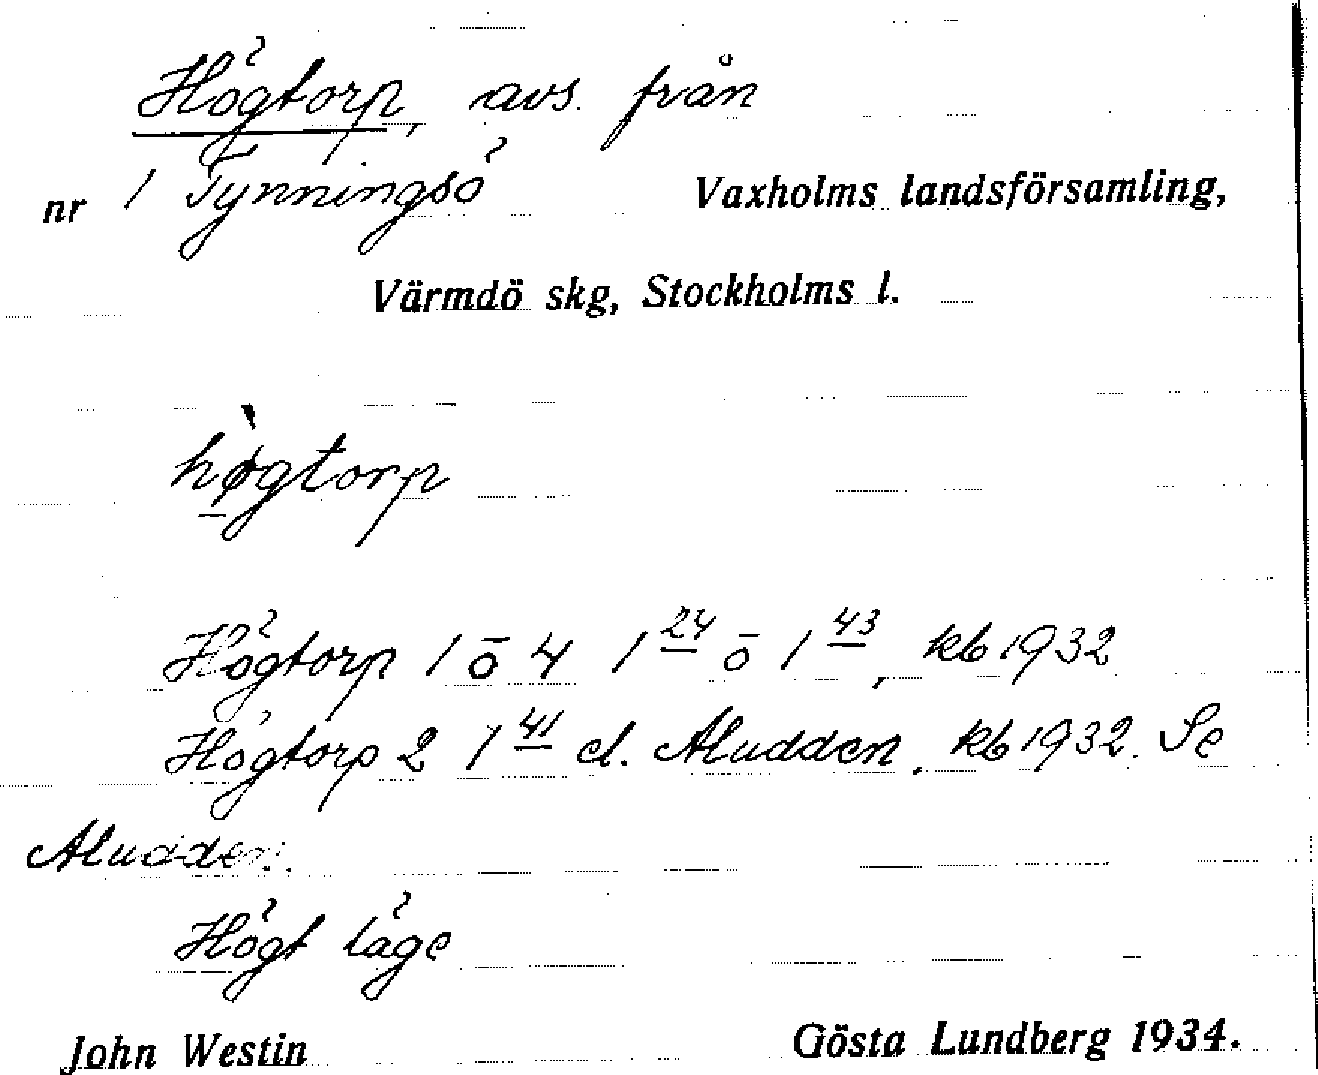 Högtorp, avs. från
nr 1 Tynningsö Vaxholms landsförsamling,
Värmdö skg, Stockholms l.
hø̀gtorp
Högtorp 1 o 4 1 24 o 1 43, kb 1932
Högtorp 2 1 41 el. Aludden, kb 1932. Se
Aludden.
Högt läge
John Westin Gösta Lundberg 1934.